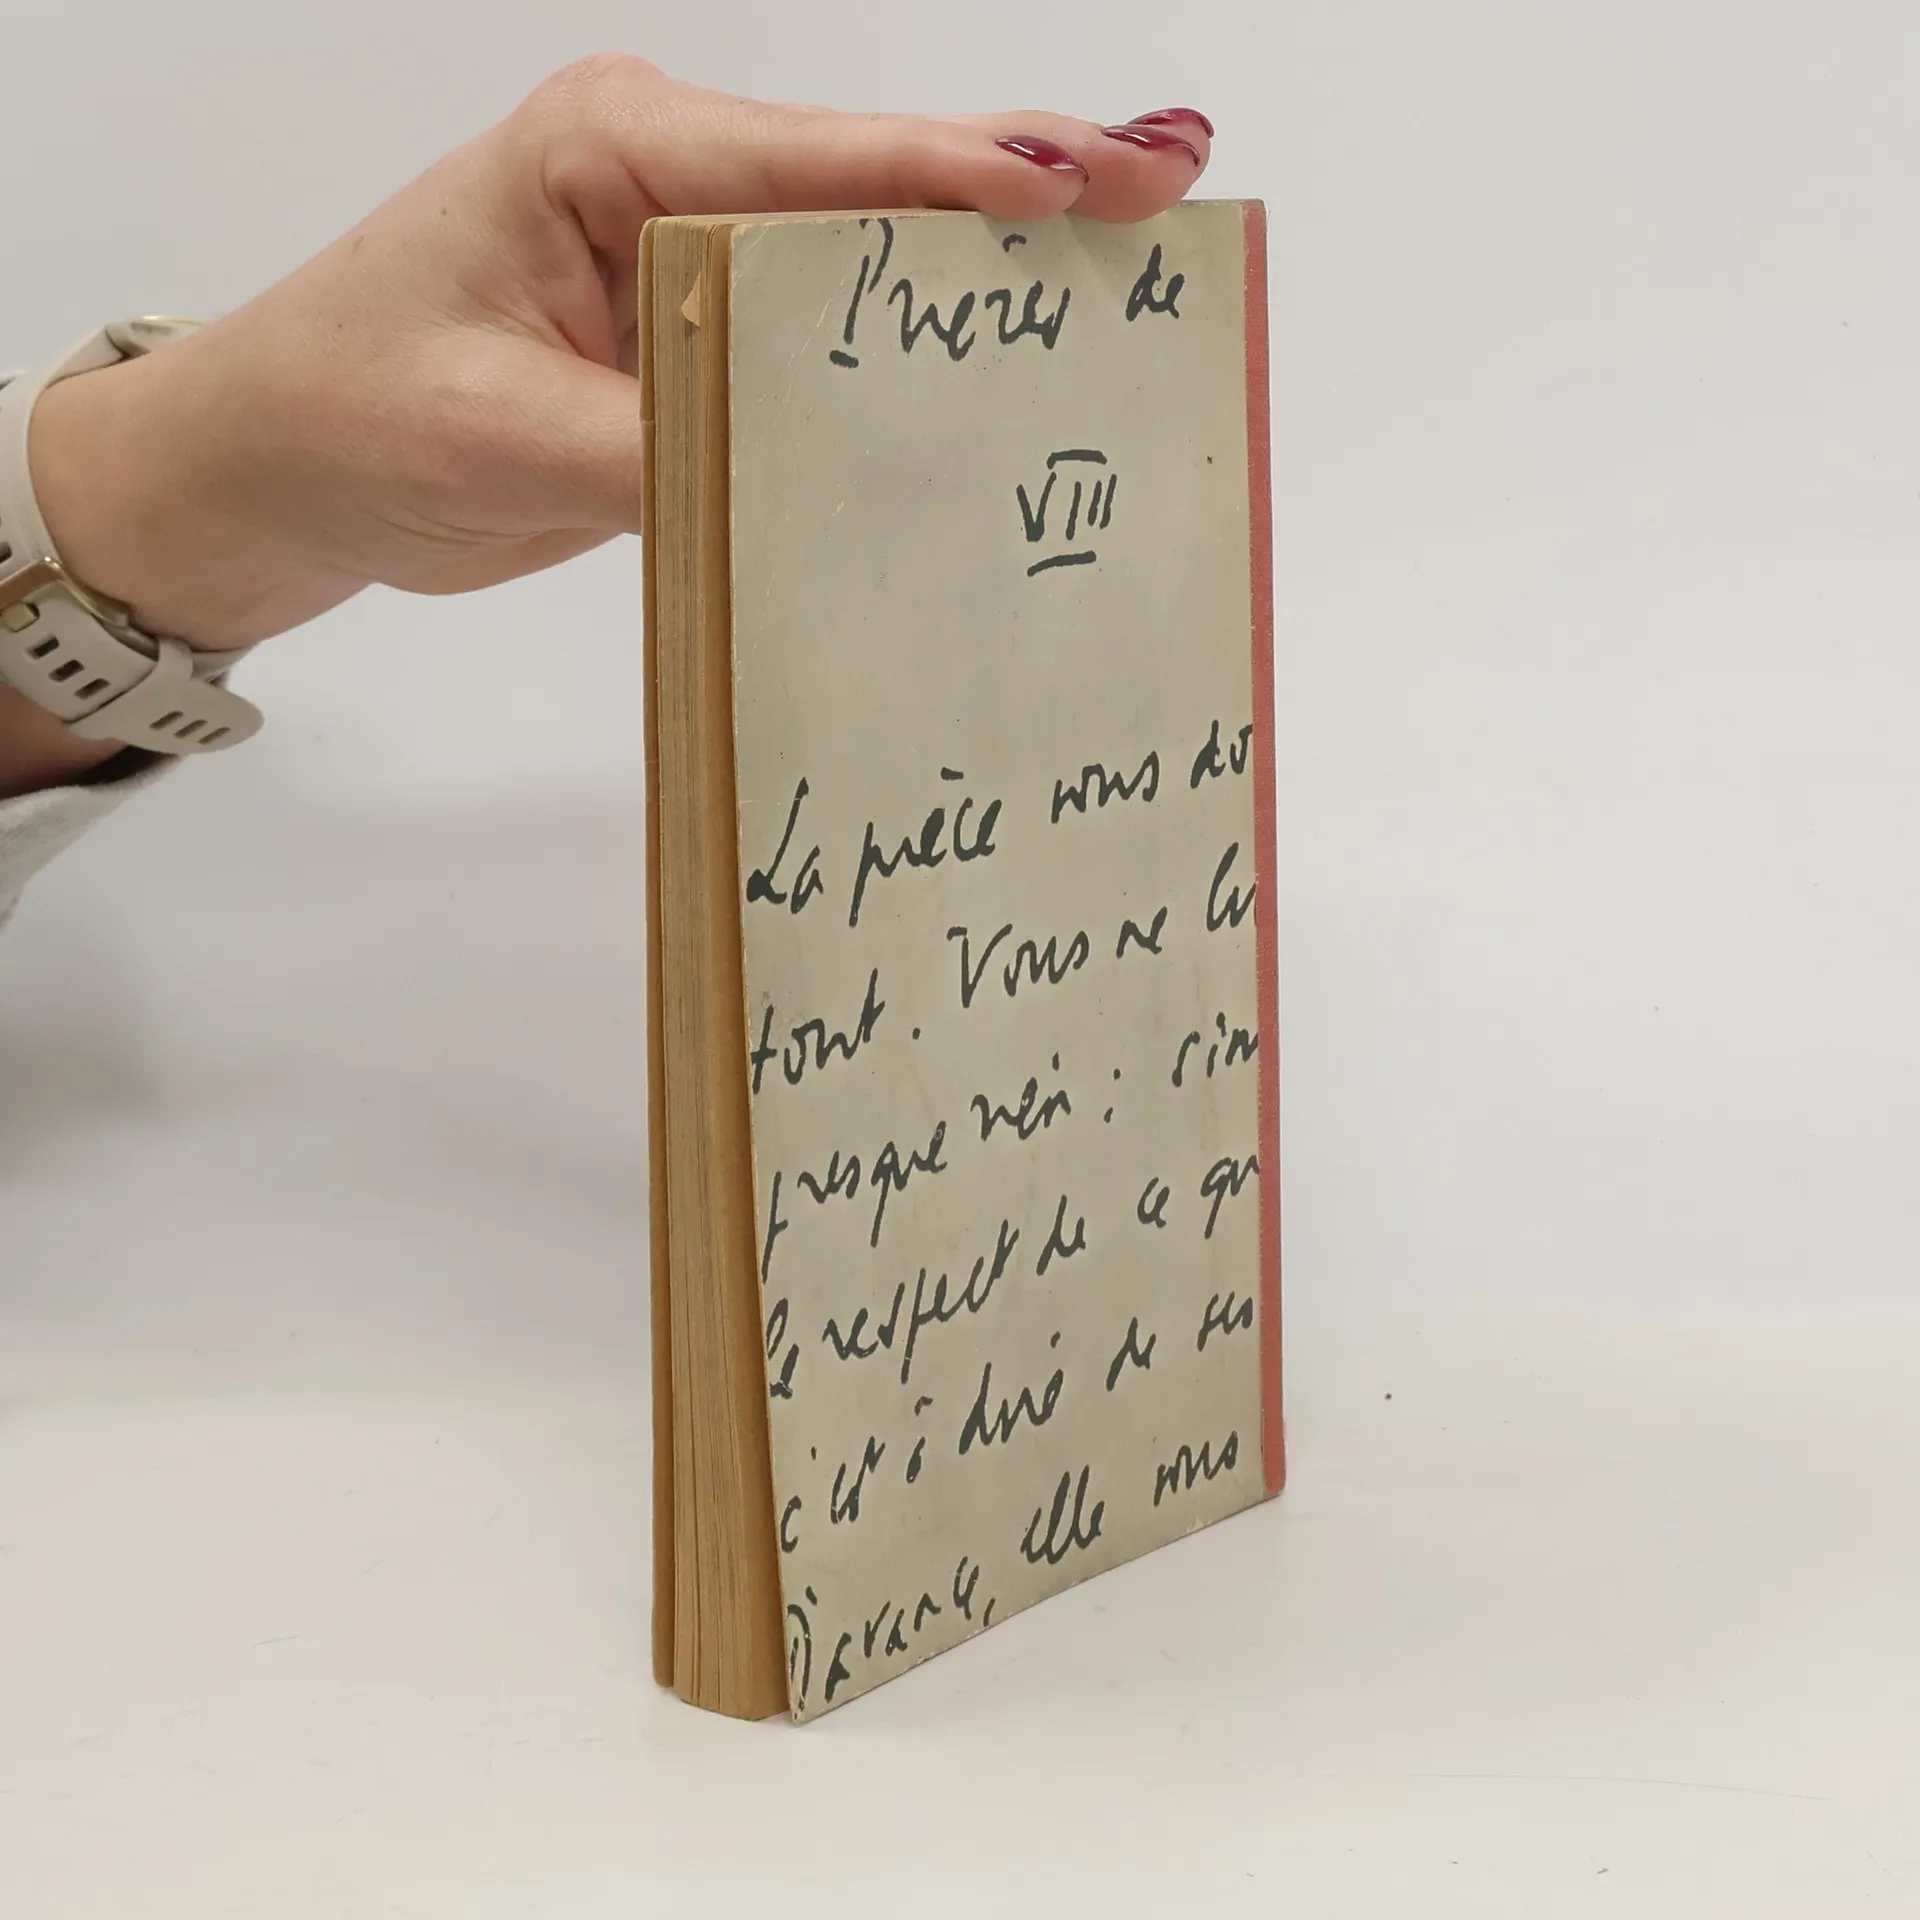 Prières de
VIII
La pièce vous do
tout. Vous ne lu
presque rien : sim
le respect de ce qu
c'est à dire de ses
D'avance, elle vous